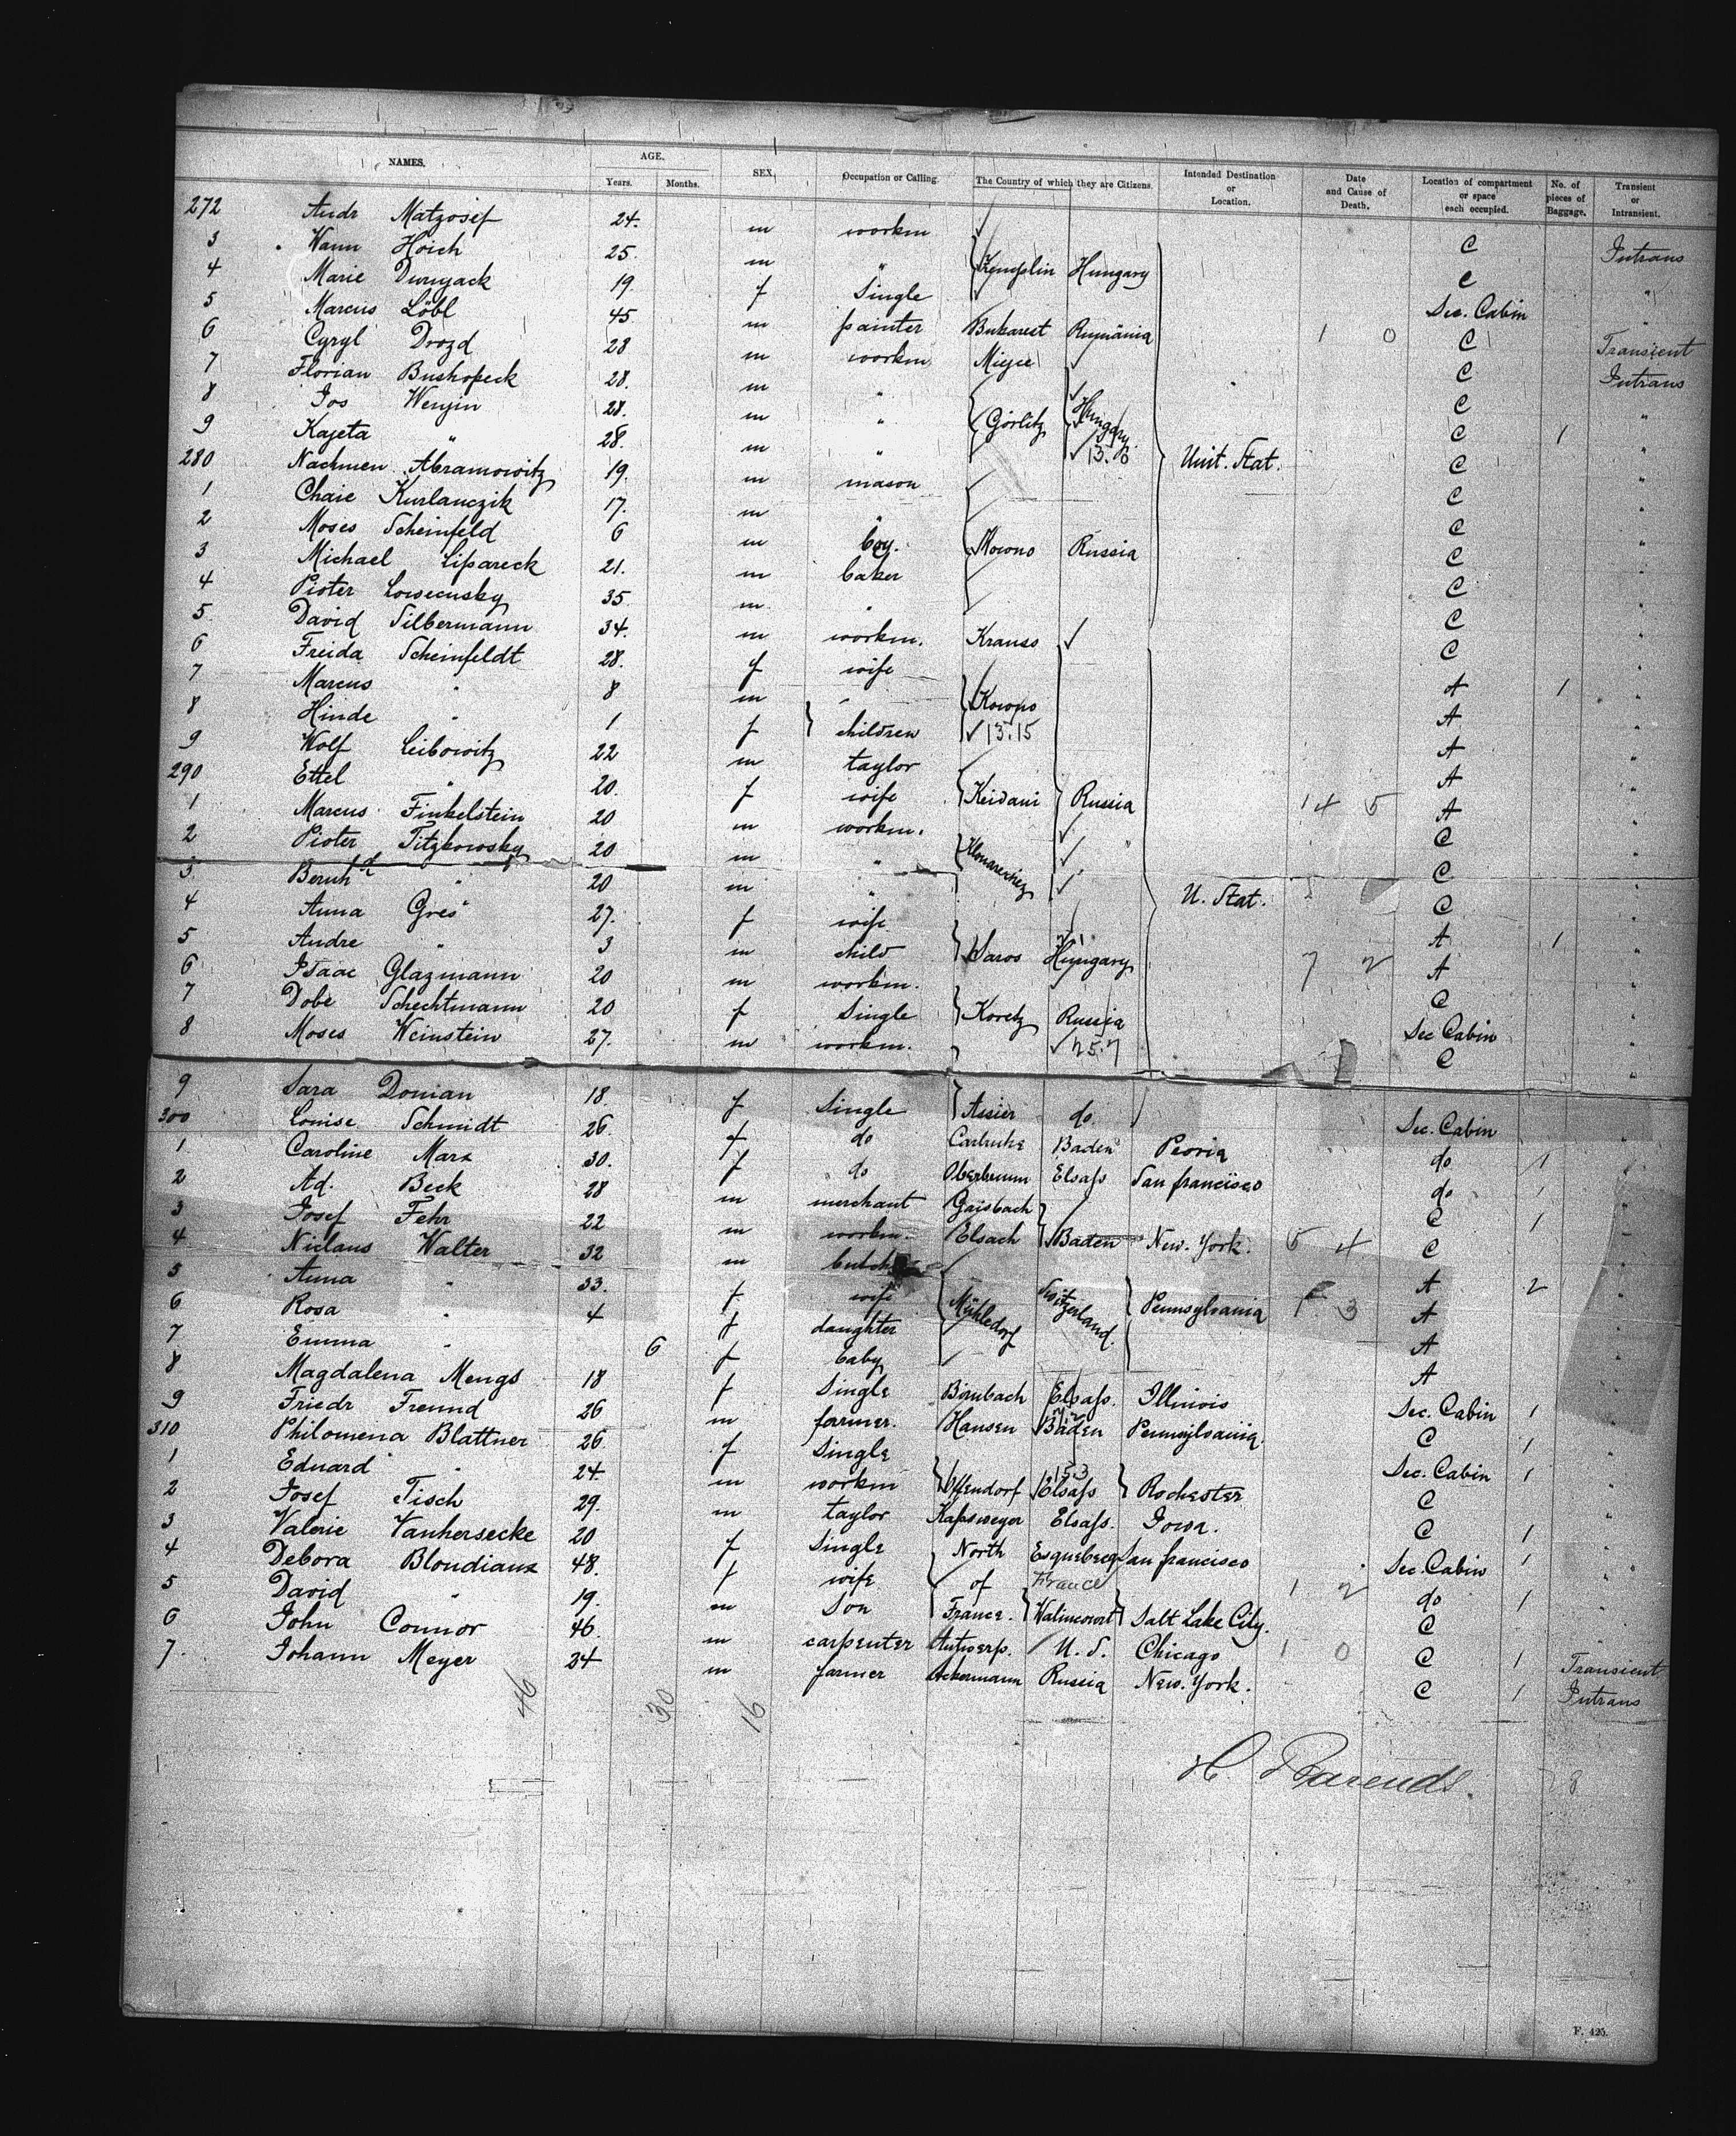 NAMES. AGE. Years. Months. SEX Occupation or Calling. The Country of which they are Citizens. Intended Destination or Location. Date and Cause of Death. Location of compartment or space each occupied. No. of pieces of Baggage. Transient or Intransient.
272 Andr Matzosif 24. m workm C Intrans
3 Wann Hoich 25. m " Hungary C "
4 Marie 19 f Single Sec. Cabin "
5 Marcus Löbl 45 m painter Bukarest Rumänia 1 0 C Transient
6 Cyryl Drozd 28 m workm C Intrans
7 Florian Bushopeck 28. m " C "
8 Jos Wenjin 28. m " Görlitz Hungary C 1 "
9 Kajeta " 28. m " 13. B Unit. Stat. C "
280 Nachmen Abramowitz 19. m mason C "
1 Chaie Kurlanczik 17. m " C "
2 Moses Scheinfeld 6 m boy. Kowno Russia C "
3 Michael Lipareck 21. m baker C "
4 Pioter Lowecusky 35. m " C "
5 David Silbermann 34. m workm. Krauss C "
6 Freida Scheinfeldt 28. f wife A 1 "
7 Marcus " 8 m " Kowno A "
8 Hinde " 1 f children 13.15 A "
9 Wolf Leibowitz 22 m taylor A "
290 Ettel " 20. f wife Keidani Russia 14 5 A "
1 Marcus Finkelstein 20 m workm. C "
2 Pioter Titzkowsky 20 m " C "
3 " 20 m " U. Stat. C "
4 Anna Gres 27. f wife A 1 "
5 Andre " 3 m child Saros Hungary 7 2 A "
6 Isaac Glazmann 20 m workm. C "
7 Dobe Schechtmann 20 f Single Koretz Russia Sec Cabin "
8 Moses Weinstein 27. m workm. 25.7 C "
9 Sara Donian 18. f Single Assier do. Sec. Cabin "
300 Louise Schmidt 26. f do Carlsruhe Baden Peoria do 1 "
1 Caroline Marx 30. f do Elsass San francisco do 1 "
2 Ad. Beck 28 m merchant Gaisbach C 1 "
3 Josef Fehr 22 m workm. Elsach Baden New. York. 5 4 C "
4 Niclaus Walter 32 m A 2 "
5 Anna " 33. f wife Mühledorf Switzerland. Pennsylvania 1 3 A "
6 Rosa " 4 f daughter A "
7 Emma " 6 f baby A "
8 Magdalena Mengs 18 f Single Birnbach Elsass. Illinois Sec. Cabin 1 "
9 Friedr Freund 26 m farmer. Hansen Baden Pennsylvania. C 1 "
310 Philomena Blattner 26. f Single 15.3 Sec. Cabin 1 "
1 Eduard " 24. m workm Offendorf Elsass Rochester C "
2 Josef Tisch 29. m taylor Elsass. Iowa. C 1 "
3 Valerie Vanhersecke 20 f Single North San francisco Sec. Cabin 1 "
4 Debora Blondiaux 48. f wife of France 1 2 do 1 "
5 David " 19. m Son France. Walincourt Salt Lake City. C "
6 John Connor 46. m carpenter Antwerp. U. S. Chicago 1 0 C 1 Transient
7. Johann Meyer 24 m farmer Ackermann Russia New. York. C 1 Intrans
46 30 16
H. Barends.
F. 425.